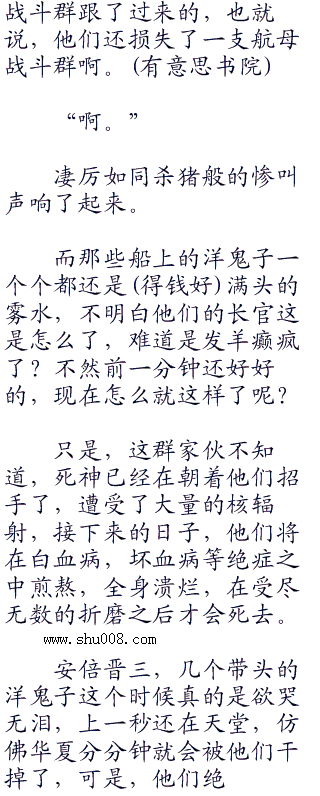 战斗群跟了过来的，也就
说，他们还损失了一支航母
战斗群啊。(有意思书院)
“啊。”
凄厉如同杀猪般的惨叫
声响了起来。
而那些船上的洋鬼子一
个个都还是(得钱好)满头的
雾水，不明白他们的长官这
是怎么了，难道是发羊癫疯
了？不然前一分钟还好好
的，现在怎么就这样了呢？
只是，这群家伙不知
道，死神已经在朝着他们招
手了，遭受了大量的核辐
射，接下来的日子，他们将
在白血病，坏血病等绝症之
中煎熬，全身溃烂，在受尽
无数的折磨之后才会死去。
www.shu008.com
安倍晋三，几个带头的
洋鬼子这个时候真的是欲哭
无泪，上一秒还在天堂，仿
佛华夏分分钟就会被他们干
掉了，可是，他们绝